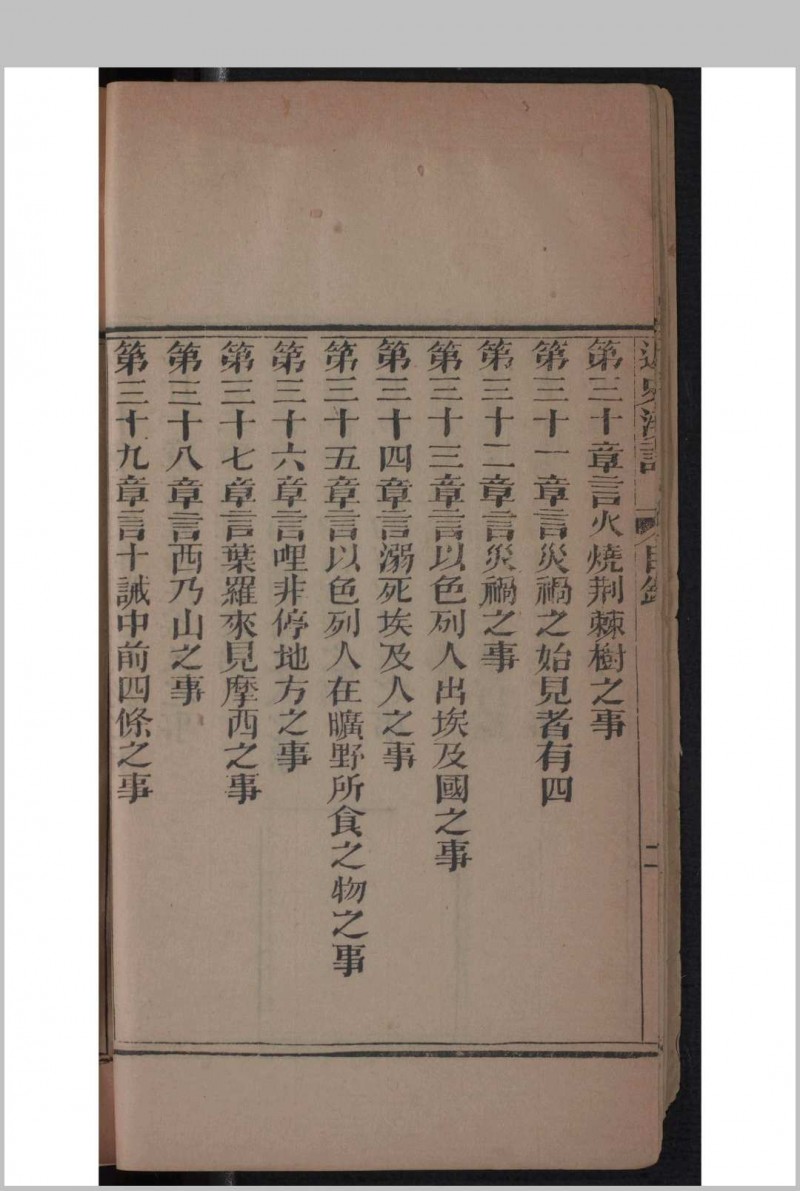 目錄
二
第三十章言火燒荆棘樹之事
第三十一章言災禍之始見者有四
第三十二章言災禍之事
第三十三章言以色列人出埃及國之事
第三十四章言溺死埃及人之事
第三十五章言以色列人在曠野所食之物之事
第三十六章言哩非停地方之事
第三十七章言葉羅來見摩西之事
第三十八章言西乃山之事
第三十九章言十誡中前四條之事